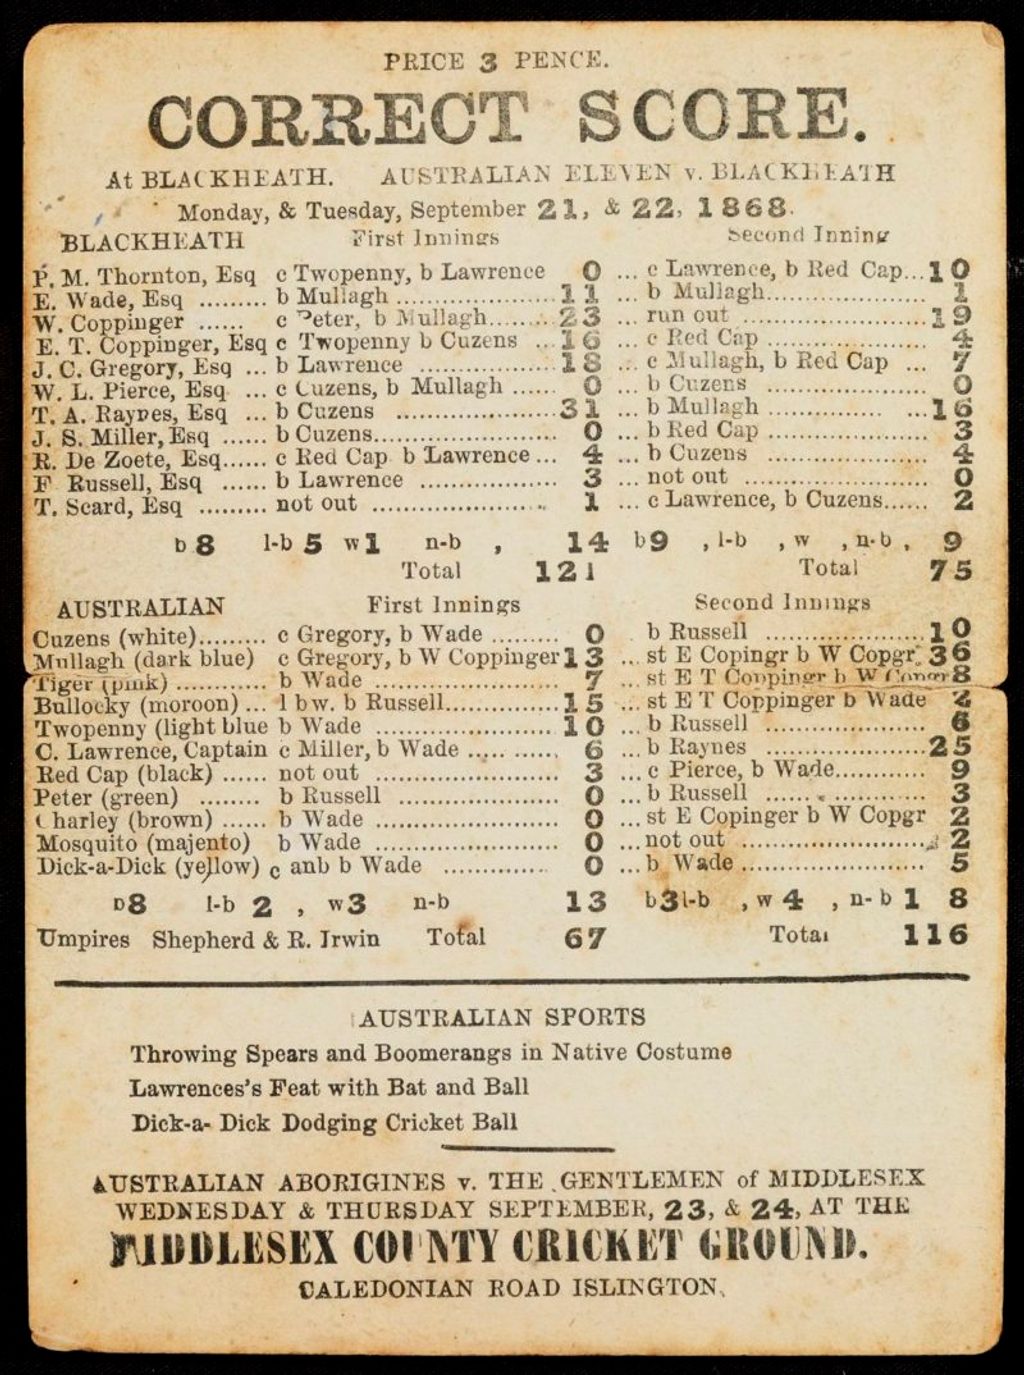 PRICE 3 PENCE.
CORRECT SCORE.
At BLACKHEATH. AUSTRALIAN ELEVEN v. BLACKHEATH
Monday, & Tuesday, September 21, & 22, 1868.
BLACKHEATH First Innings Second Inning
P. M. Thornton, Esq c Twopenny, b Lawrence 0 ... c Lawrence, b Red Cap...10
E. Wade, Esq ......... b Mullagh ..................... 11 ... b Mullagh..................... 1
W. Coppinger ...... c Peter, b Mullagh......... 23 ... run out ........................ 19
E. T. Coppinger, Esq c Twopenny b Cuzens ... 16 ... c Red Cap ..................... 4
J. C. Gregory, Esq ... b Lawrence .................. 18 ... c Mullagh, b Red Cap ... 7
W. L. Pierce, Esq ... c Cuzens, b Mullagh ...... 0 ... b Cuzens ..................... 0
T. A. Raynes, Esq ... b Cuzens ..................... 31 ... b Mullagh ..................... 16
J. S. Miller, Esq ...... b Cuzens........................ 0 ... b Red Cap ..................... 3
R. De Zoete, Esq...... c Red Cap b Lawrence... 4 ... b Cuzens ..................... 4
F Russell, Esq ...... b Lawrence .................. 3 ... not out ........................ 0
T. Scard, Esq ......... not out ........................ 1 ... c Lawrence, b Cuzens...... 2
b 8 l-b 5 w 1 n-b , 14 b 9 , l-b , w , n-b , 9
Total 121 Total 75
AUSTRALIAN First Innings Second Innings
Cuzens (white)......... c Gregory, b Wade ......... 0 b Russell ..................... 10
Mullagh (dark blue) c Gregory, b W Coppinger 13 ... st E Copingr b W Copgr. 36
Tiger (pink) ............ b Wade ........................ 7 ... st E T Coppingr b W Copgr 8
Bullocky (moroon) ... l b w. b Russell............... 15 ... st E T Coppinger b Wade 2
Twopenny (light blue b Wade ........................ 10 ... b Russell ..................... 6
C. Lawrence, Captain c Miller, b Wade ............ 6 ... b Raynes ..................... 25
Red Cap (black) ...... not out ........................ 3 ... c Pierce, b Wade............ 9
Peter (green) ......... b Russell ..................... 0 ... b Russell ..................... 3
Charley (brown) ...... b Wade ........................ 0 ... st E Copinger b W Copgr 2
Mosquito (majento) b Wade ........................ 0 ... not out ........................ 2
Dick-a-Dick (yellow) c anb b Wade ............... 0 ... b Wade ........................ 5
b 8 l-b 2 , w 3 n-b 13 b 3 l-b , w 4 , n-b 1 8
Umpires Shepherd & R. Irwin Total 67 Total 116
AUSTRALIAN SPORTS
Throwing Spears and Boomerangs in Native Costume
Lawrences's Feat with Bat and Ball
Dick-a- Dick Dodging Cricket Ball
AUSTRALIAN ABORIGINES v. THE GENTLEMEN of MIDDLESEX
WEDNESDAY & THURSDAY SEPTEMBER, 23, & 24, AT THE
MIDDLESEX COUNTY CRICKET GROUND.
CALEDONIAN ROAD ISLINGTON.